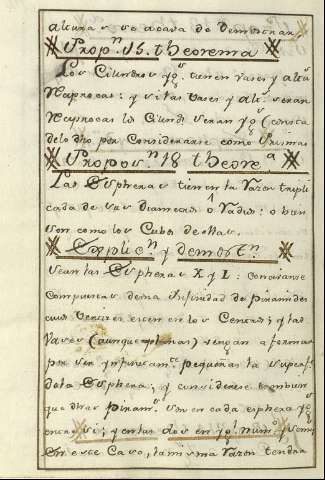 alturas y se acaba de Demostrar
Prop.n 15. theorema
Los Cilindros yg.s tienen vases y altu.s
Reciprocas: y si las vases y alt.s seran
Reciprocas los Cilind.s seran yg.s (consta
de lo dho por Considerarse como Prismas
Propos.n 18 theore.a
Las Espheras tienen la Razon tripli
cada de sus Diametros ó Radios: o bien
son como los Cubos de ellas.
Explic.n y demost.n
Sean las Espheras X y Z: concivanse
Compuestas de una Infinidad de piramides
cuios Vertices esten en los Centros; y las
Vases (aunque planas) vengan a formar
por ser ynfinitam.te pequeñas la superf.e
de la Esphera; y considerese tambien
que dhas Piram.s son en cada esphera yg.s
entre si; y en las dos en yg.l num.o
En este Caso, la misma Razon tendra